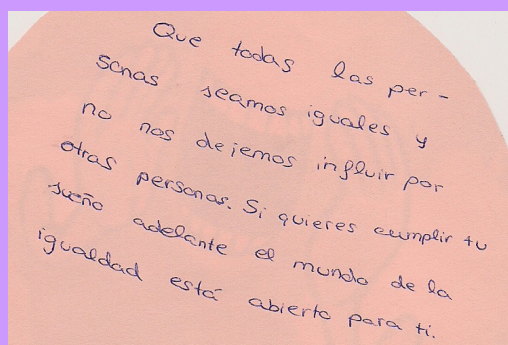 Que todas las per-
sonas seamos iguales y
no nos dejemos influir por
otras personas. Si quieres cumplir tu
sueño adelante el mundo de la
igualdad está abierto para ti.